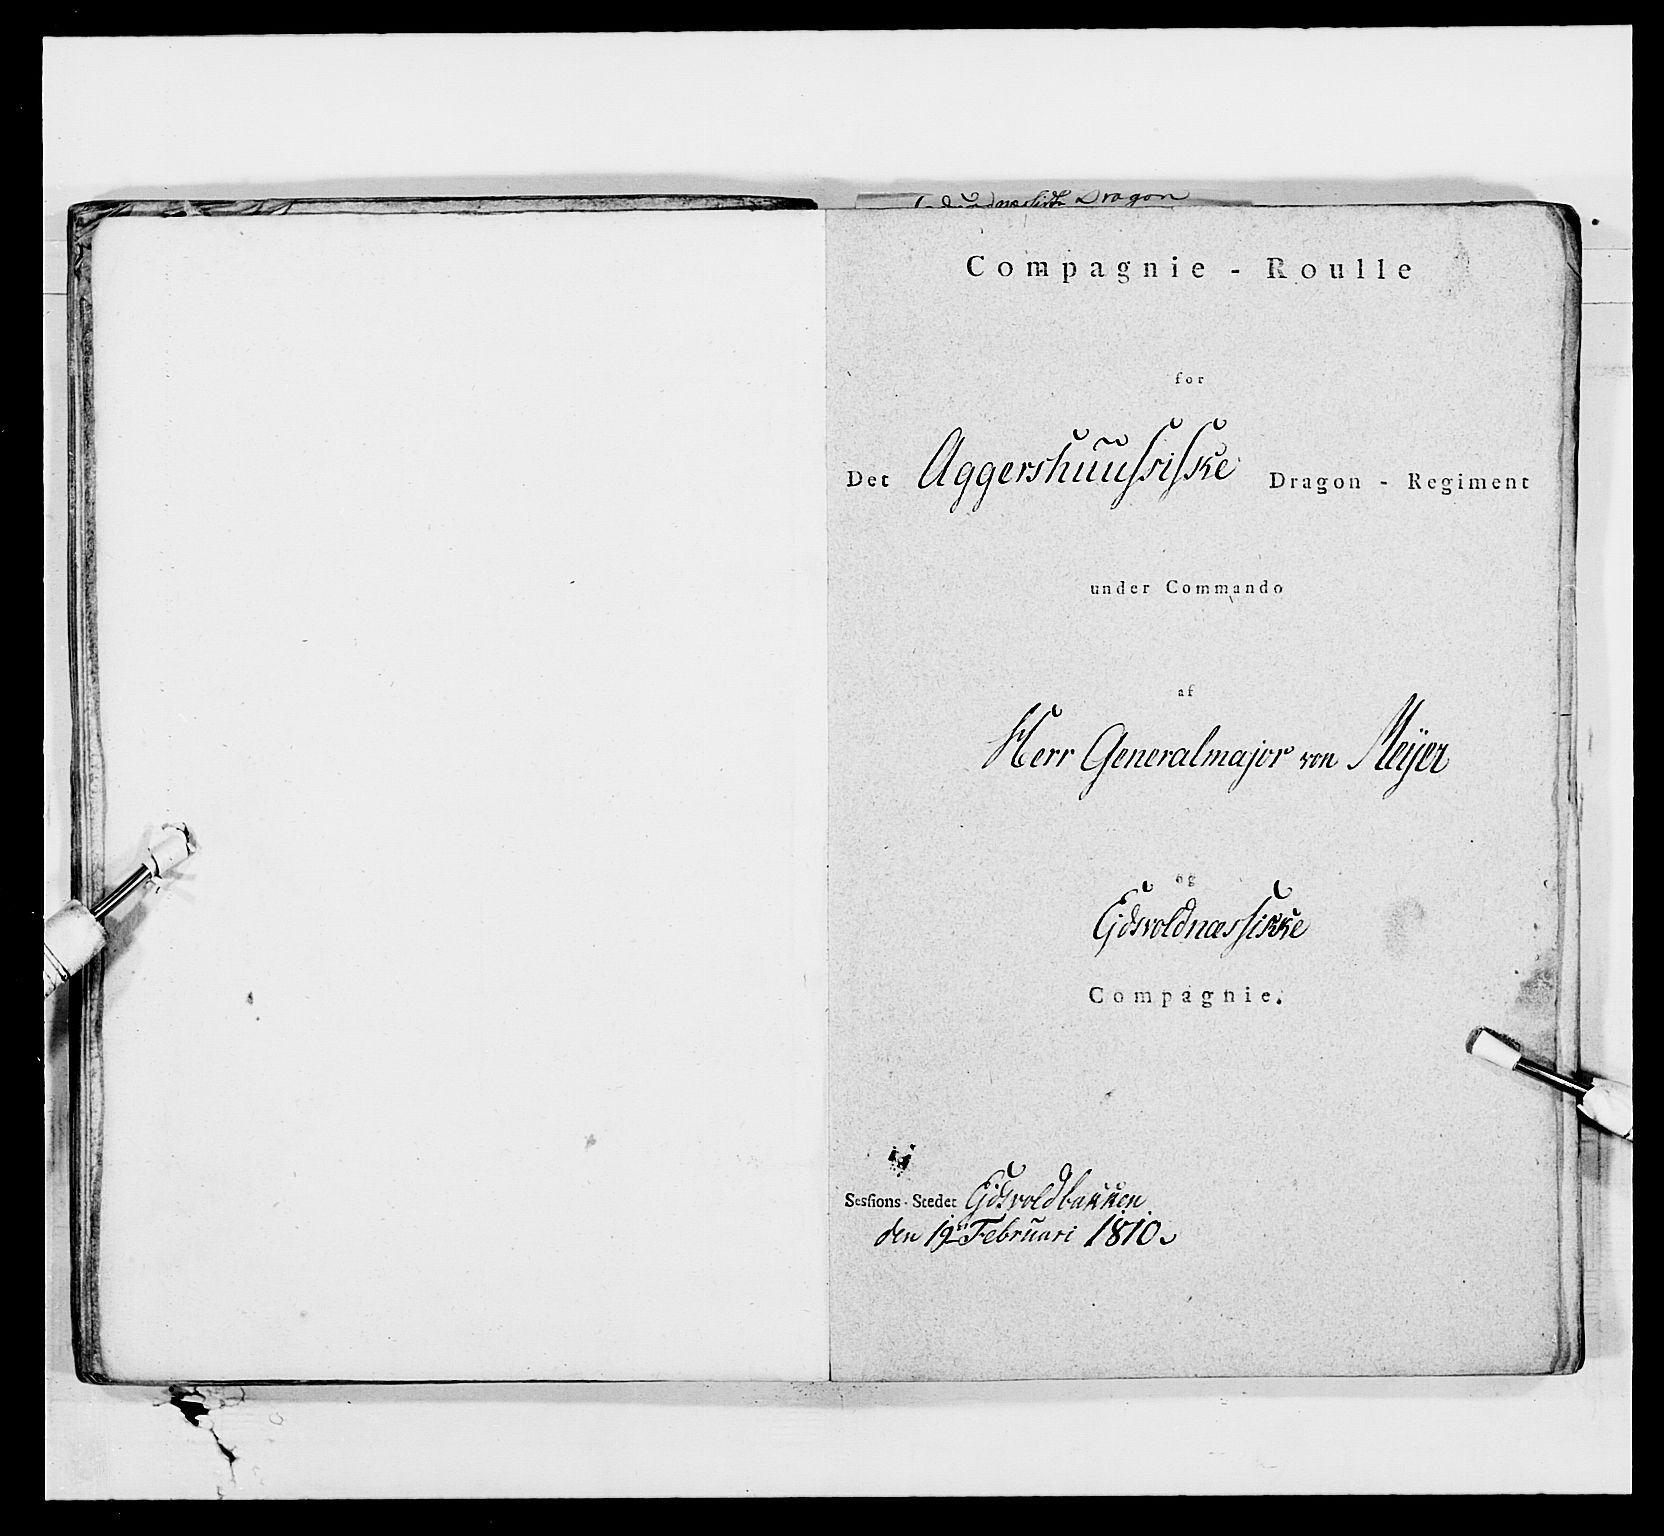 Dragon
Compagnie - Roulle
for
Det Aggershuussiske Dragon - Regiment
under Commando
af
Herr Generalmajor von Meÿer
og
Eidsvoldnæssiske
Compagnie.
Sessions-Stedet Eidsvoldbakken
den 19de Februari 1810.